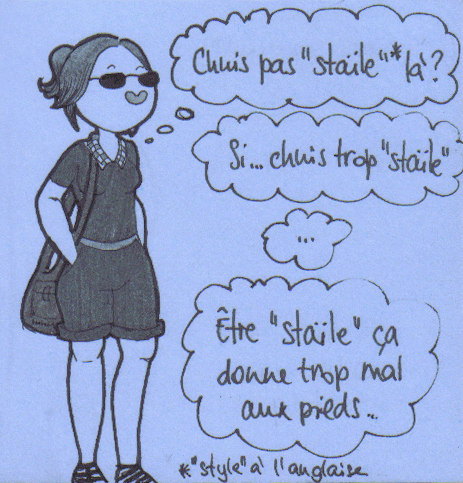 Chuis pas "staïle"* là ?
Si... chuis trop "staïle"
...
Être "staïle" ça
donne trop mal
aux pieds...
*"style" à l'anglaise